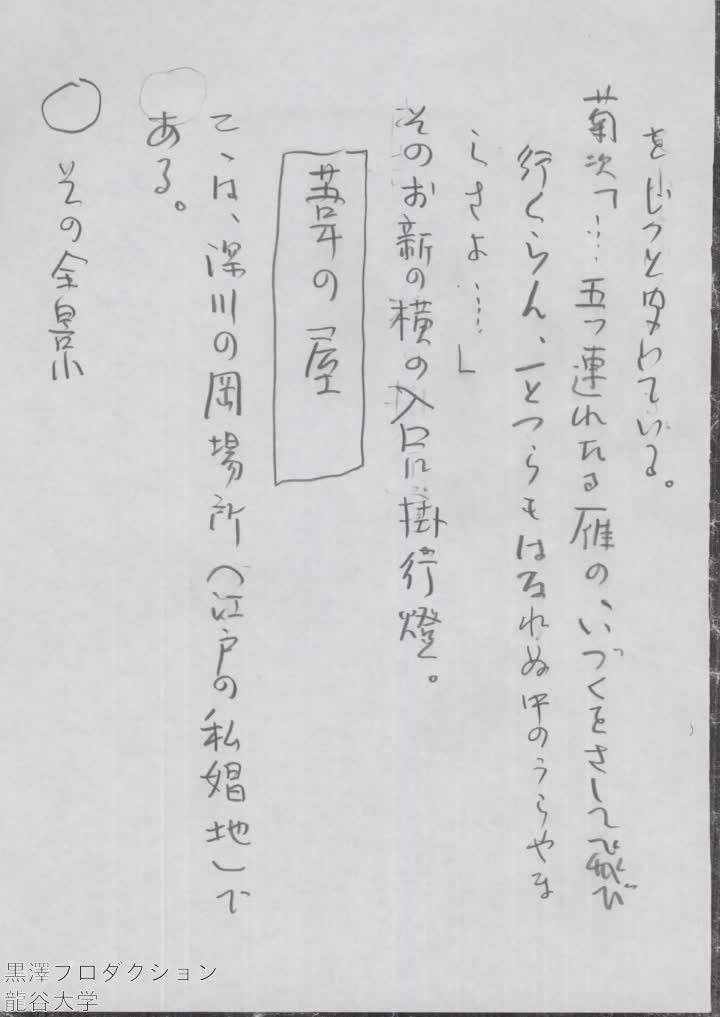 をじっと聞いている。
菊次「…五つ連れたる雁の、いづくをさして飛び
行くらん、一とつらもはなれぬ中のうらやま
しさよ……」
そのお新の横の入口に掛行燈。
葦の屋
ここは、深川の岡場所（江戸の私娼地）で
ある。
○ その全景
黒澤プロダクション
龍谷大学